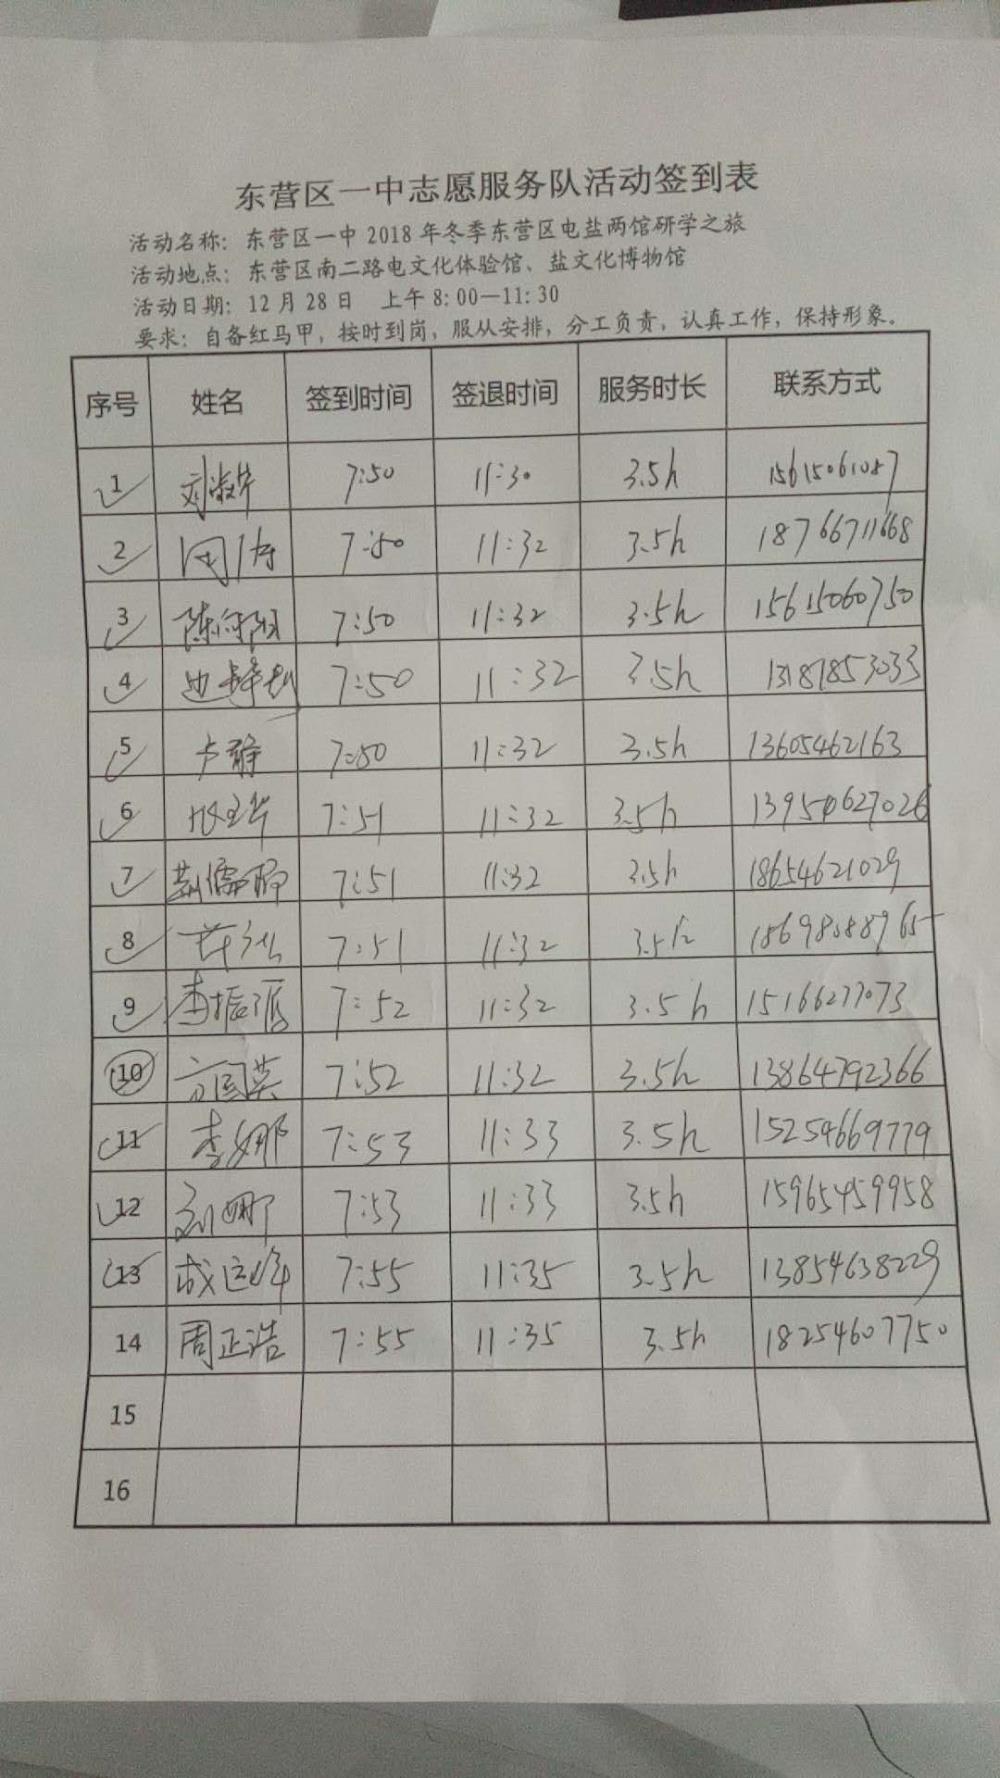 东营区一中志愿服务队活动签到表
活动名称：东营区一中2018年冬季东营区电盐两馆研学之旅
活动地点：东营区南二路电文化体验馆、盐文化博物馆
活动日期：12月28日 上午8:00—11:30
要求：自备红马甲，按时到岗，服从安排，分工负责，认真工作，保持形象。
序号 姓名 签到时间 签退时间 服务时长 联系方式
1 刘淑华 7:50 11:30 3.5h 15615061087
2 7:50 11:32 3.5h 18766711668
3 陈向阳 7:50 11:32 3.5h 15615060750
4 7:50 11:32 3.5h 13181853033
5 卢静 7:50 11:32 3.5h 13605462163
6 7:51 11:32 3.5h
7 7:51 11:32 3.5h 18654621029
8 7:51 11:32 3.5h
9 李振源 7:52 11:32 3.5h 15166277073
10 方国英 7:52 11:32 3.5h 13864792366
11 李娜 7:53 11:33 3.5h 15254669779
12 刘娜 7:53 11:33 3.5h 15965459958
13 7:55 11:35 3.5h 13854638229
14 周正浩 7:55 11:35 3.5h 18254607750
15
16